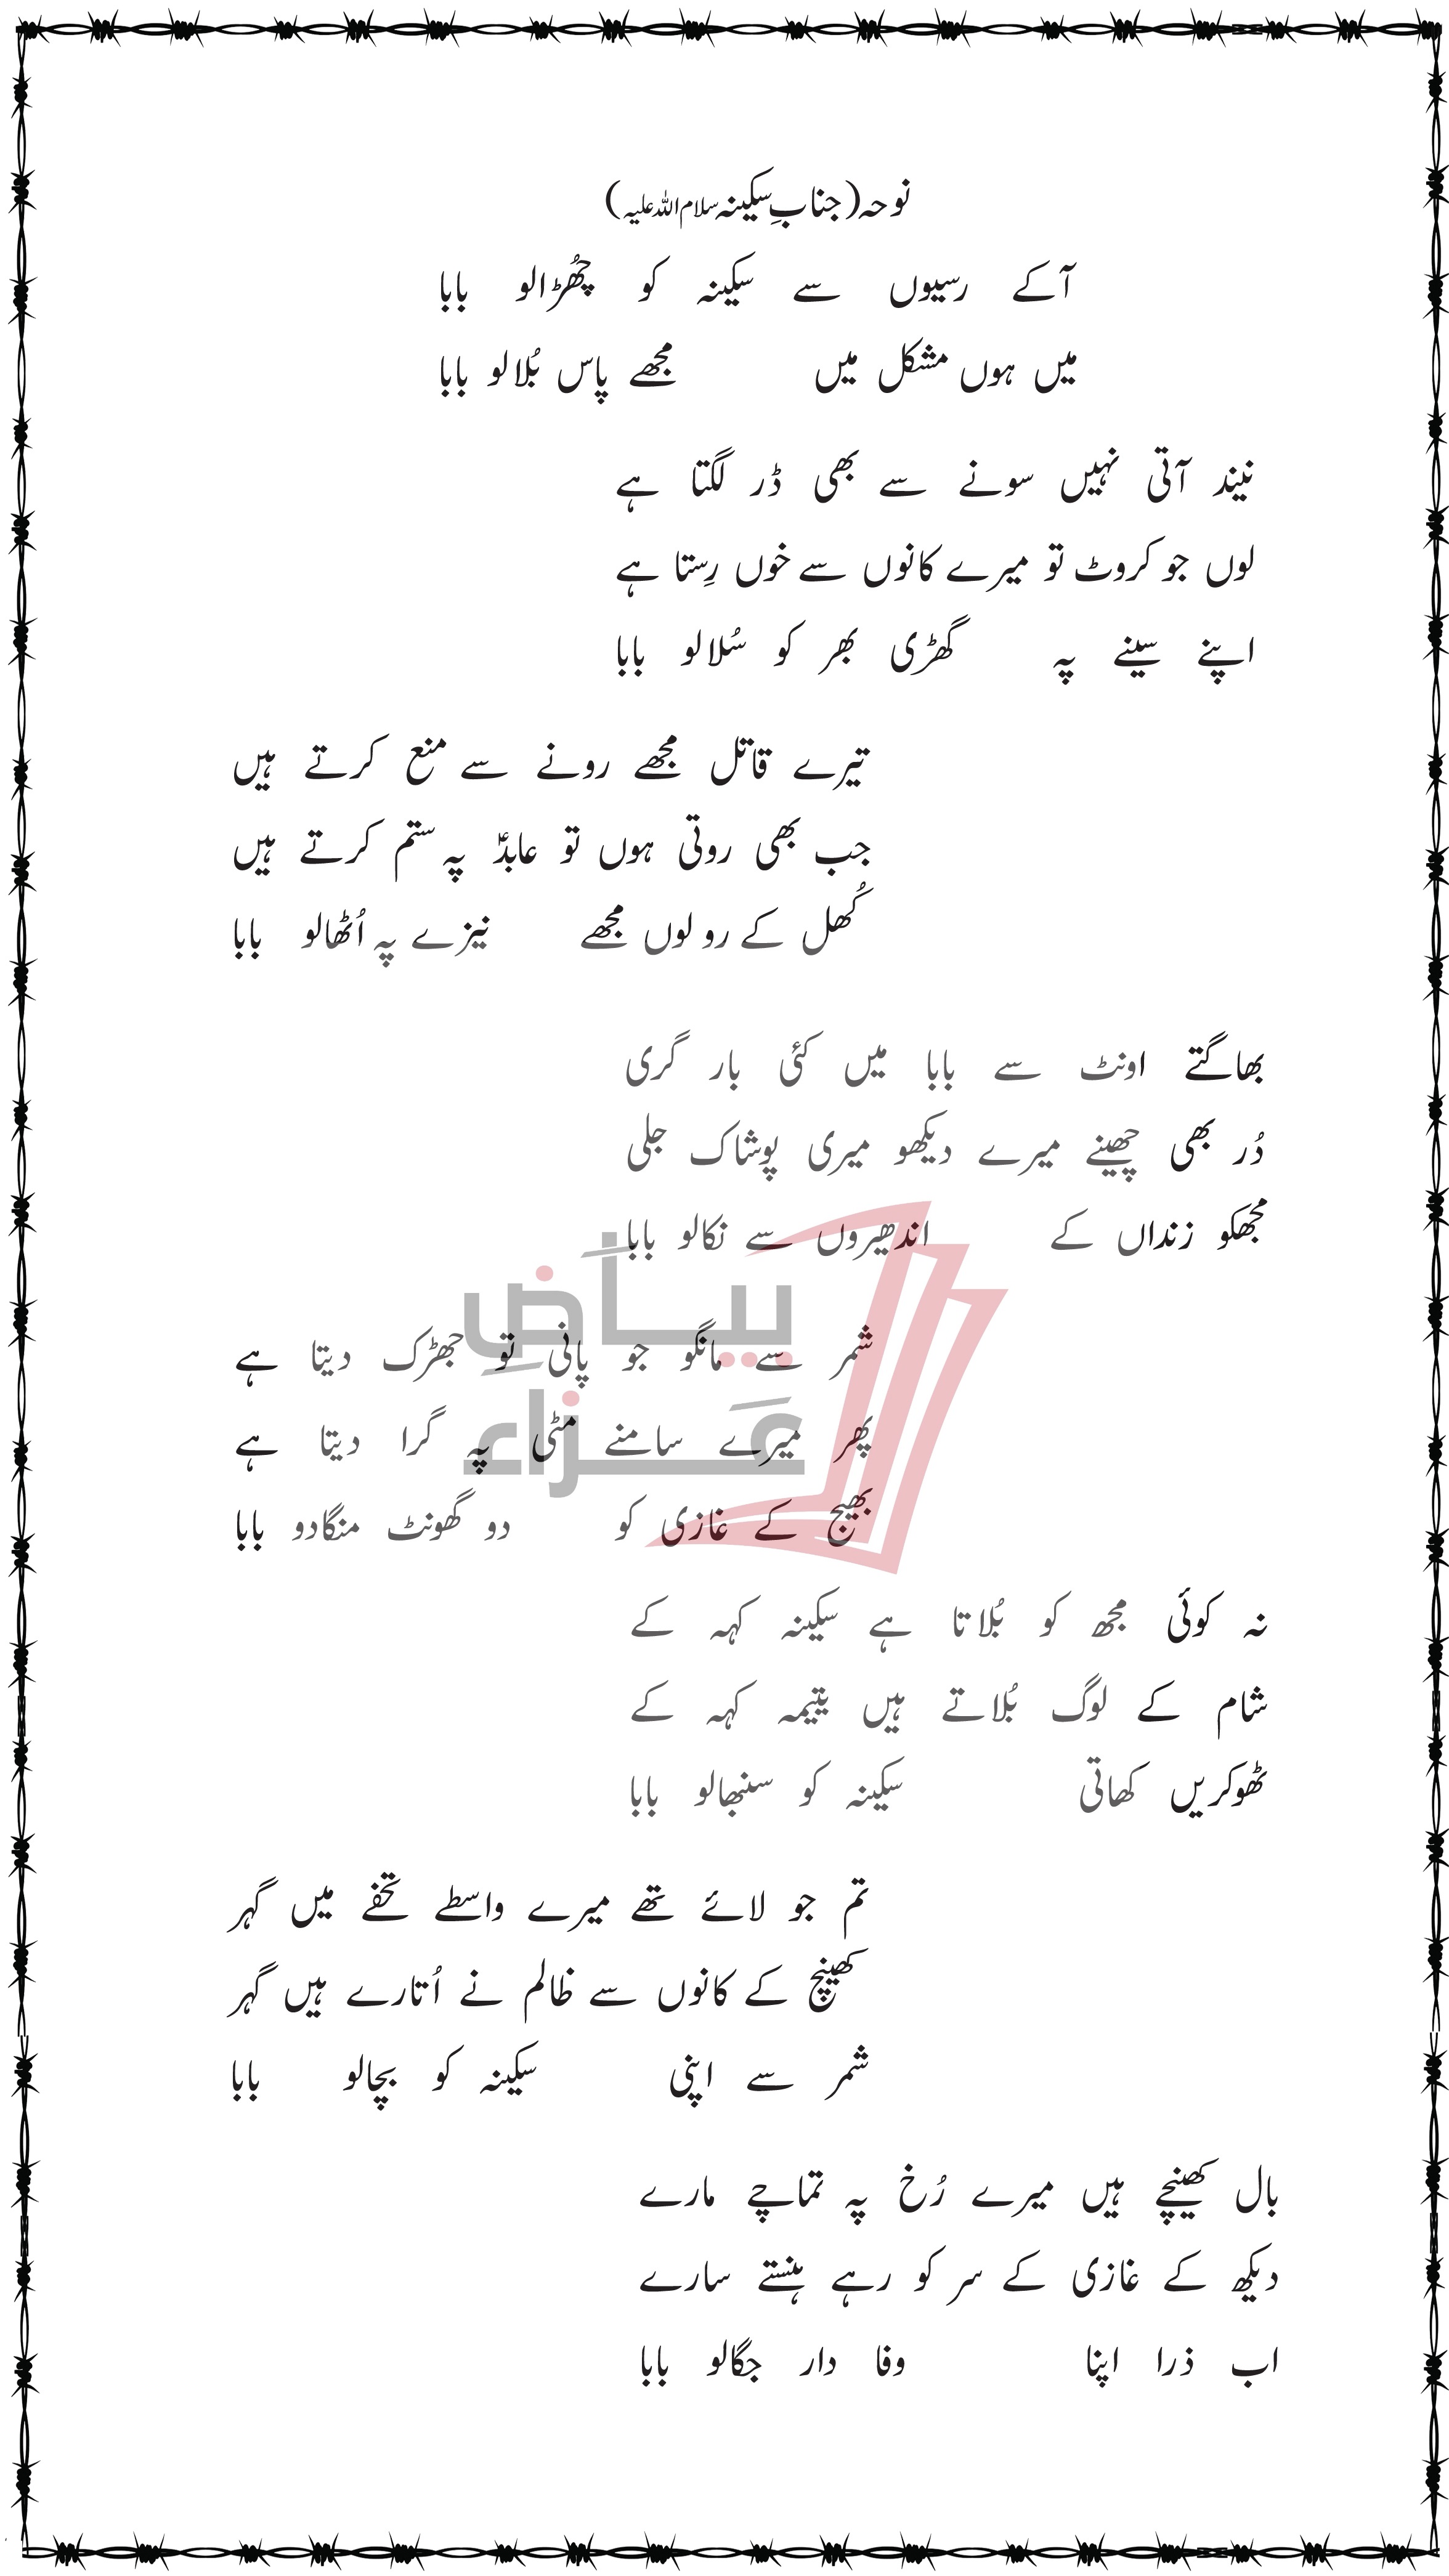 نوحہ (جنابِ سکینہ سلام اللہ علیہ)
آکے رسیوں سے سکینہ کو چھُڑالو بابا
میں ہوں مشکل میں مجھے پاس بُلالو بابا
نیند آتی نہیں سونے سے بھی ڈر لگتا ہے
لوں جو کروٹ تو میرے کانوں سے خوں رِستا ہے
اپنے سینے پہ گھڑی بھر کو سُلالو بابا
تیرے قاتل مجھے رونے سے منع کرتے ہیں
جب بھی روتی ہوں تو عابدؑ پہ ستم کرتے ہیں
کُھل کے رو لوں مجھے نیزے پہ اُٹھالو بابا
بھاگتے اونٹ سے بابا میں کئی بار گری
دُر بھی چھینے میرے دیکھو میری پوشاک جلی
مجھکو زنداں کے اندھیروں سے نکالو بابا
بیاضِ
عزاء
شمر سے مانگو جو پانی تو جھڑک دیتا ہے
پھر میرے سامنے مٹی پہ گرا دیتا ہے
بھیج کے غازی کو دو گھونٹ منگادو بابا
نہ کوئی مجھ کو بُلاتا ہے سکینہ کہہ کے
شام کے لوگ بُلاتے ہیں یتیمہ کہہ کے
ٹھوکریں کھاتی سکینہ کو سنبھالو بابا
تم جو لائے تھے میرے واسطے تحفے میں گہر
کھینچ کے کانوں سے ظالم نے اُتارے ہیں گہر
شمر سے اپنی سکینہ کو بچالو بابا
بال کھینچے ہیں میرے رُخ پہ تماچے مارے
دیکھ کے غازی کے سر کو رہے ہنستے سارے
اب ذرا اپنا وفا دار جگالو بابا